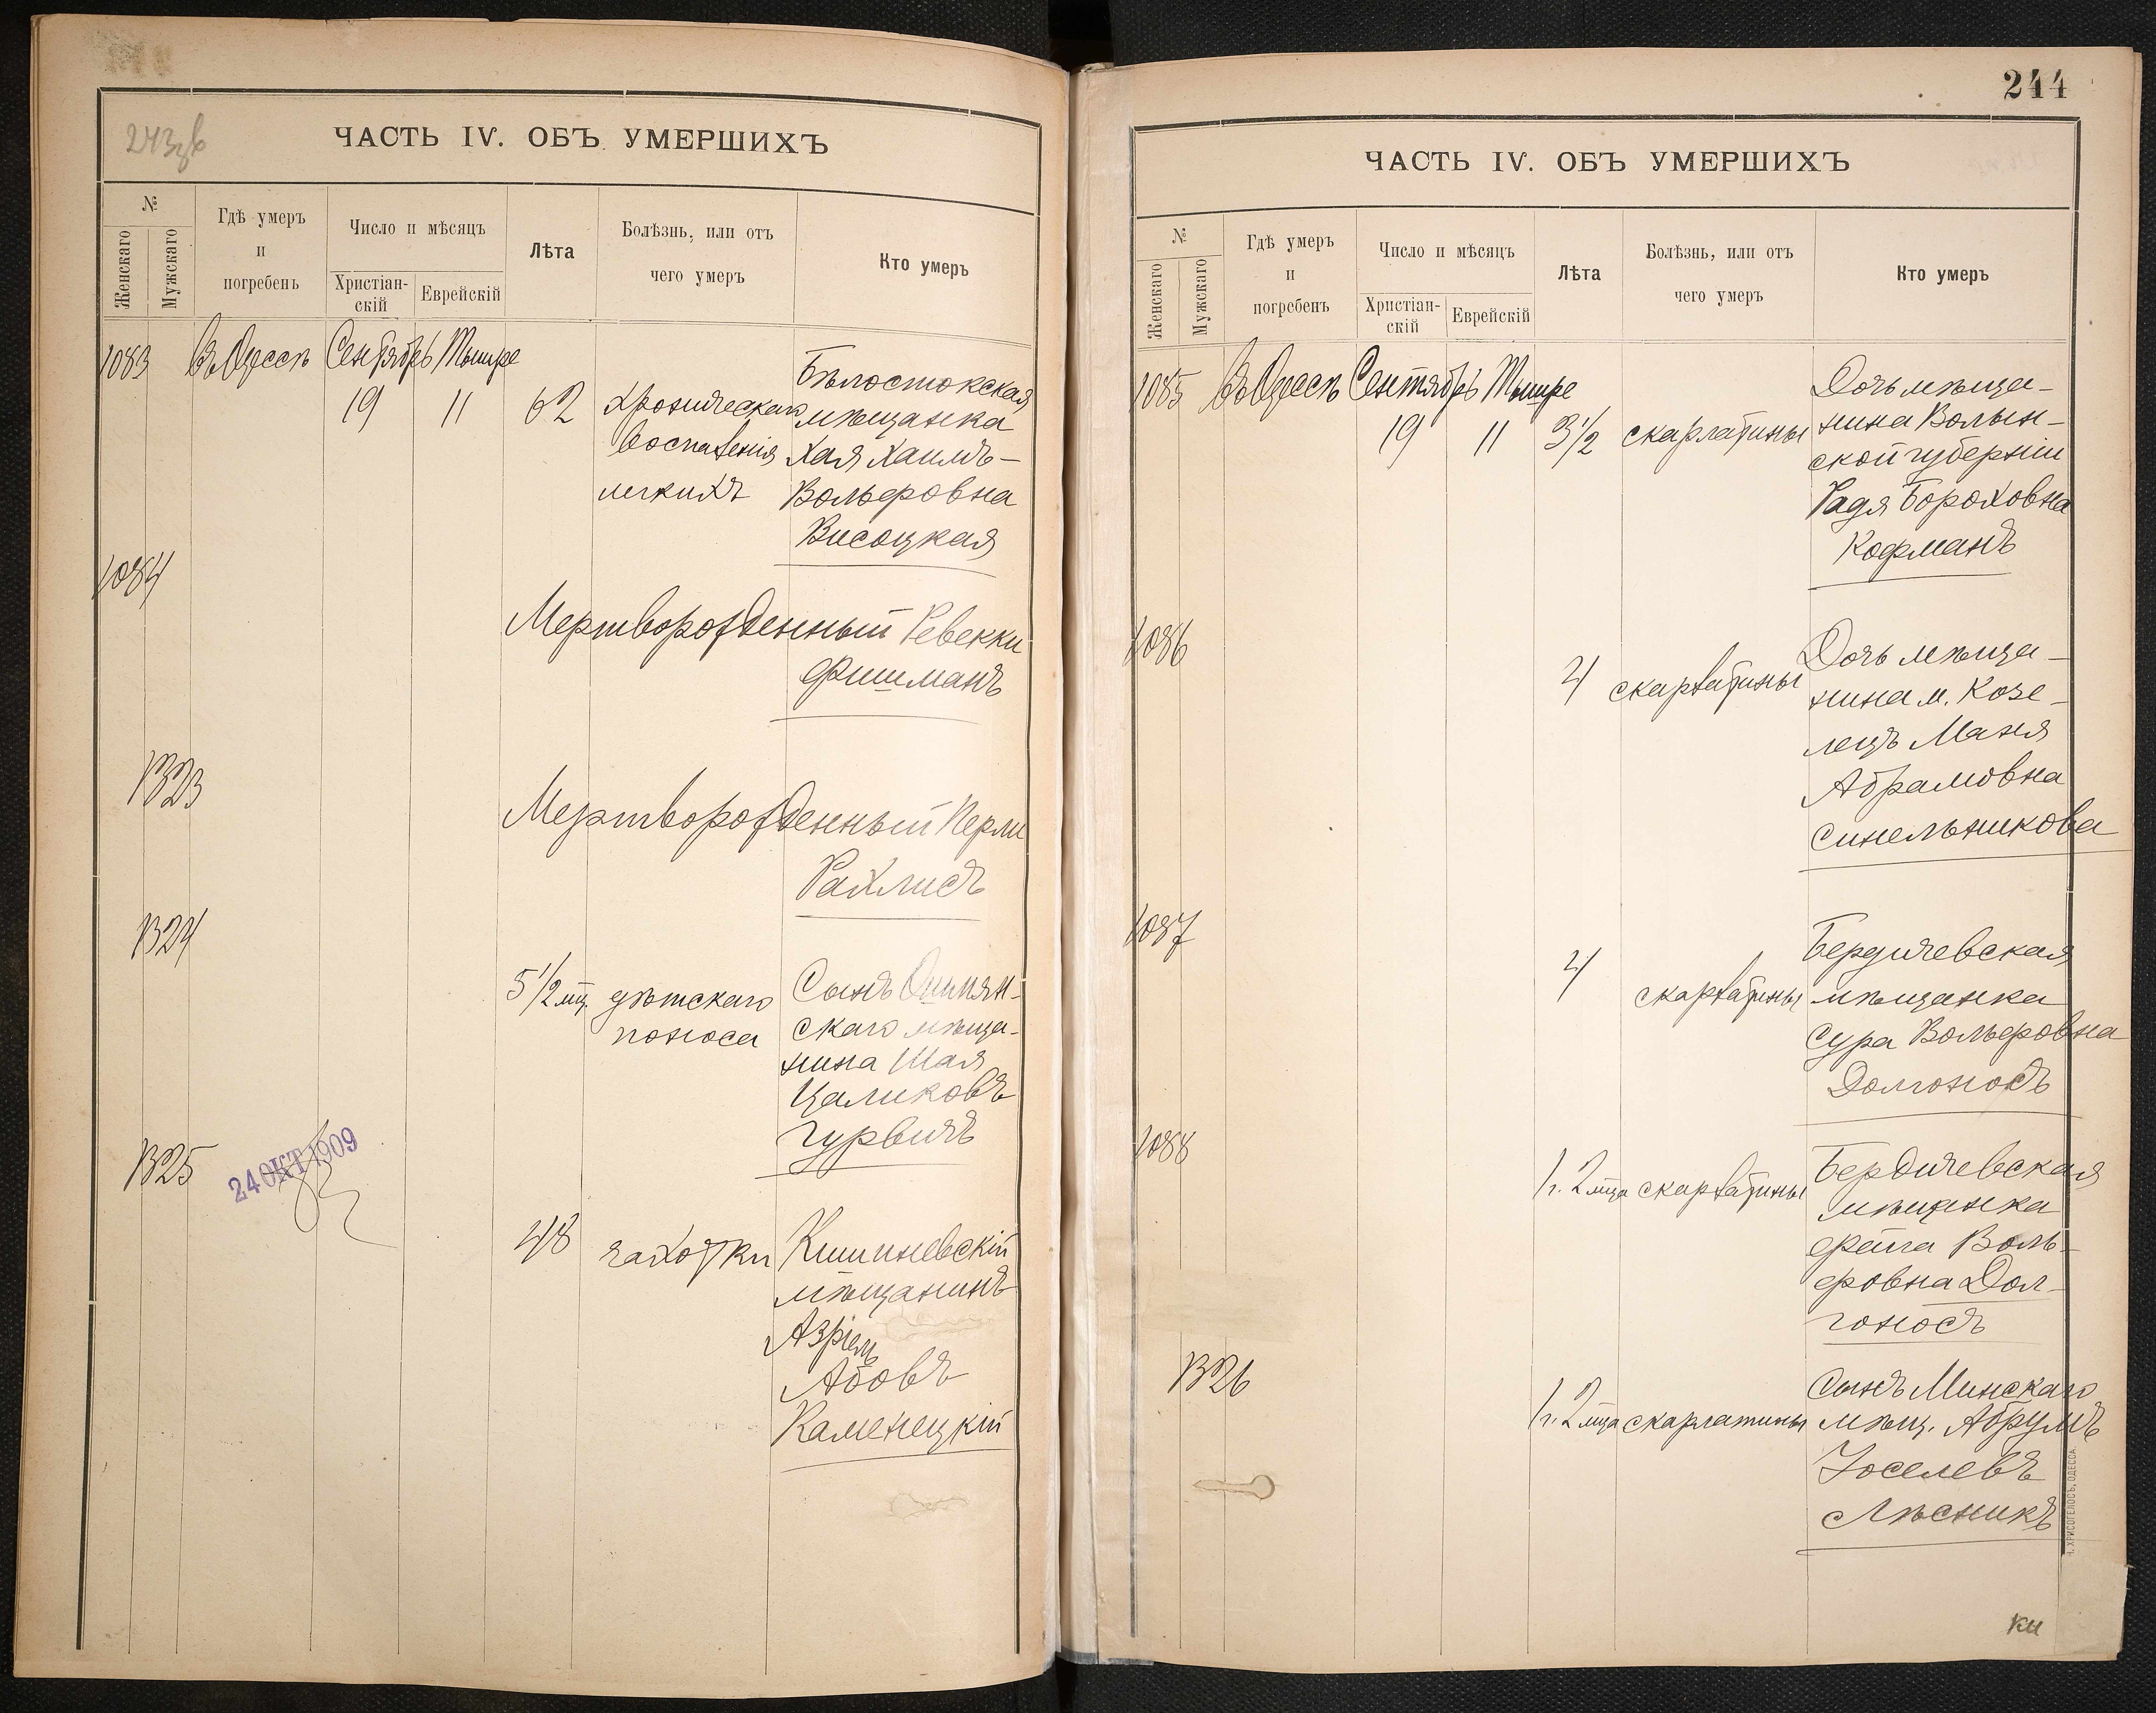 243 зв
ЧАСТЬ IV. ОБЪ УМЕРШИХЪ
№
Женскаго
Мужскаго
Гдѣ умеръ
и
погребенъ
Число и мѣсяцъ
Христіан-
скій
Еврейскій
Лѣта
Болѣзнь, или отъ
чего умеръ
Кто умеръ
1083 Въ Одессѣ Сентябрь Тишре
19 11 62 хроническаго
воспаленія
легкихъ
Бѣлостокская
мѣщанка
Хая Хаимъ-
Вольфовна
Висоцкая
1084
Мертворожденный Ревекки
Фишманъ
1323
Мертворожденный Перли
Рахлисъ
1324
5 1/2 мц. дѣтскаго
поноса
Сынъ Ошмян-
скаго мѣща-
нина Шая
Цаликовъ
Гурвичъ
1325
24 ОКТ 1909
48 чахотки
Кишиневскій
мѣщанинъ
Азріель
Абовъ
Каменецкій
244
ЧАСТЬ IV. ОБЪ УМЕРШИХЪ
№
Женскаго
Мужскаго
Гдѣ умеръ
и
погребенъ
Число и мѣсяцъ
Христіан-
скій
Еврейскій
Лѣта
Болѣзнь, или отъ
чего умеръ
Кто умеръ
1085 Въ Одессѣ Сентябрь Тишре
19 11 3 1/2 скарлатины
Дочь мѣща-
нина Волын-
ской губерніи
Радя Бороховна
Кофманъ
1086
4 скарлатины
Дочь мѣща-
нина м. Козе-
лецъ Маня
Абрамовна
Синельникова
1087
4 скарлатины
Бердичевская
мѣщанка
Сура Вольфовна
Долгоносъ
1088
1 г. 2 мца скарлатины
Бердичевская
мѣщанка
Фейга Воль-
фовна Дол-
гоносъ
1326
1 г. 2 мца скарлатины
Сынъ Минскаго
мѣщ. Абрумъ
Іоселевъ
Лѣсникъ
Х. ХРИСОГЕЛОСЪ, ОДЕССА